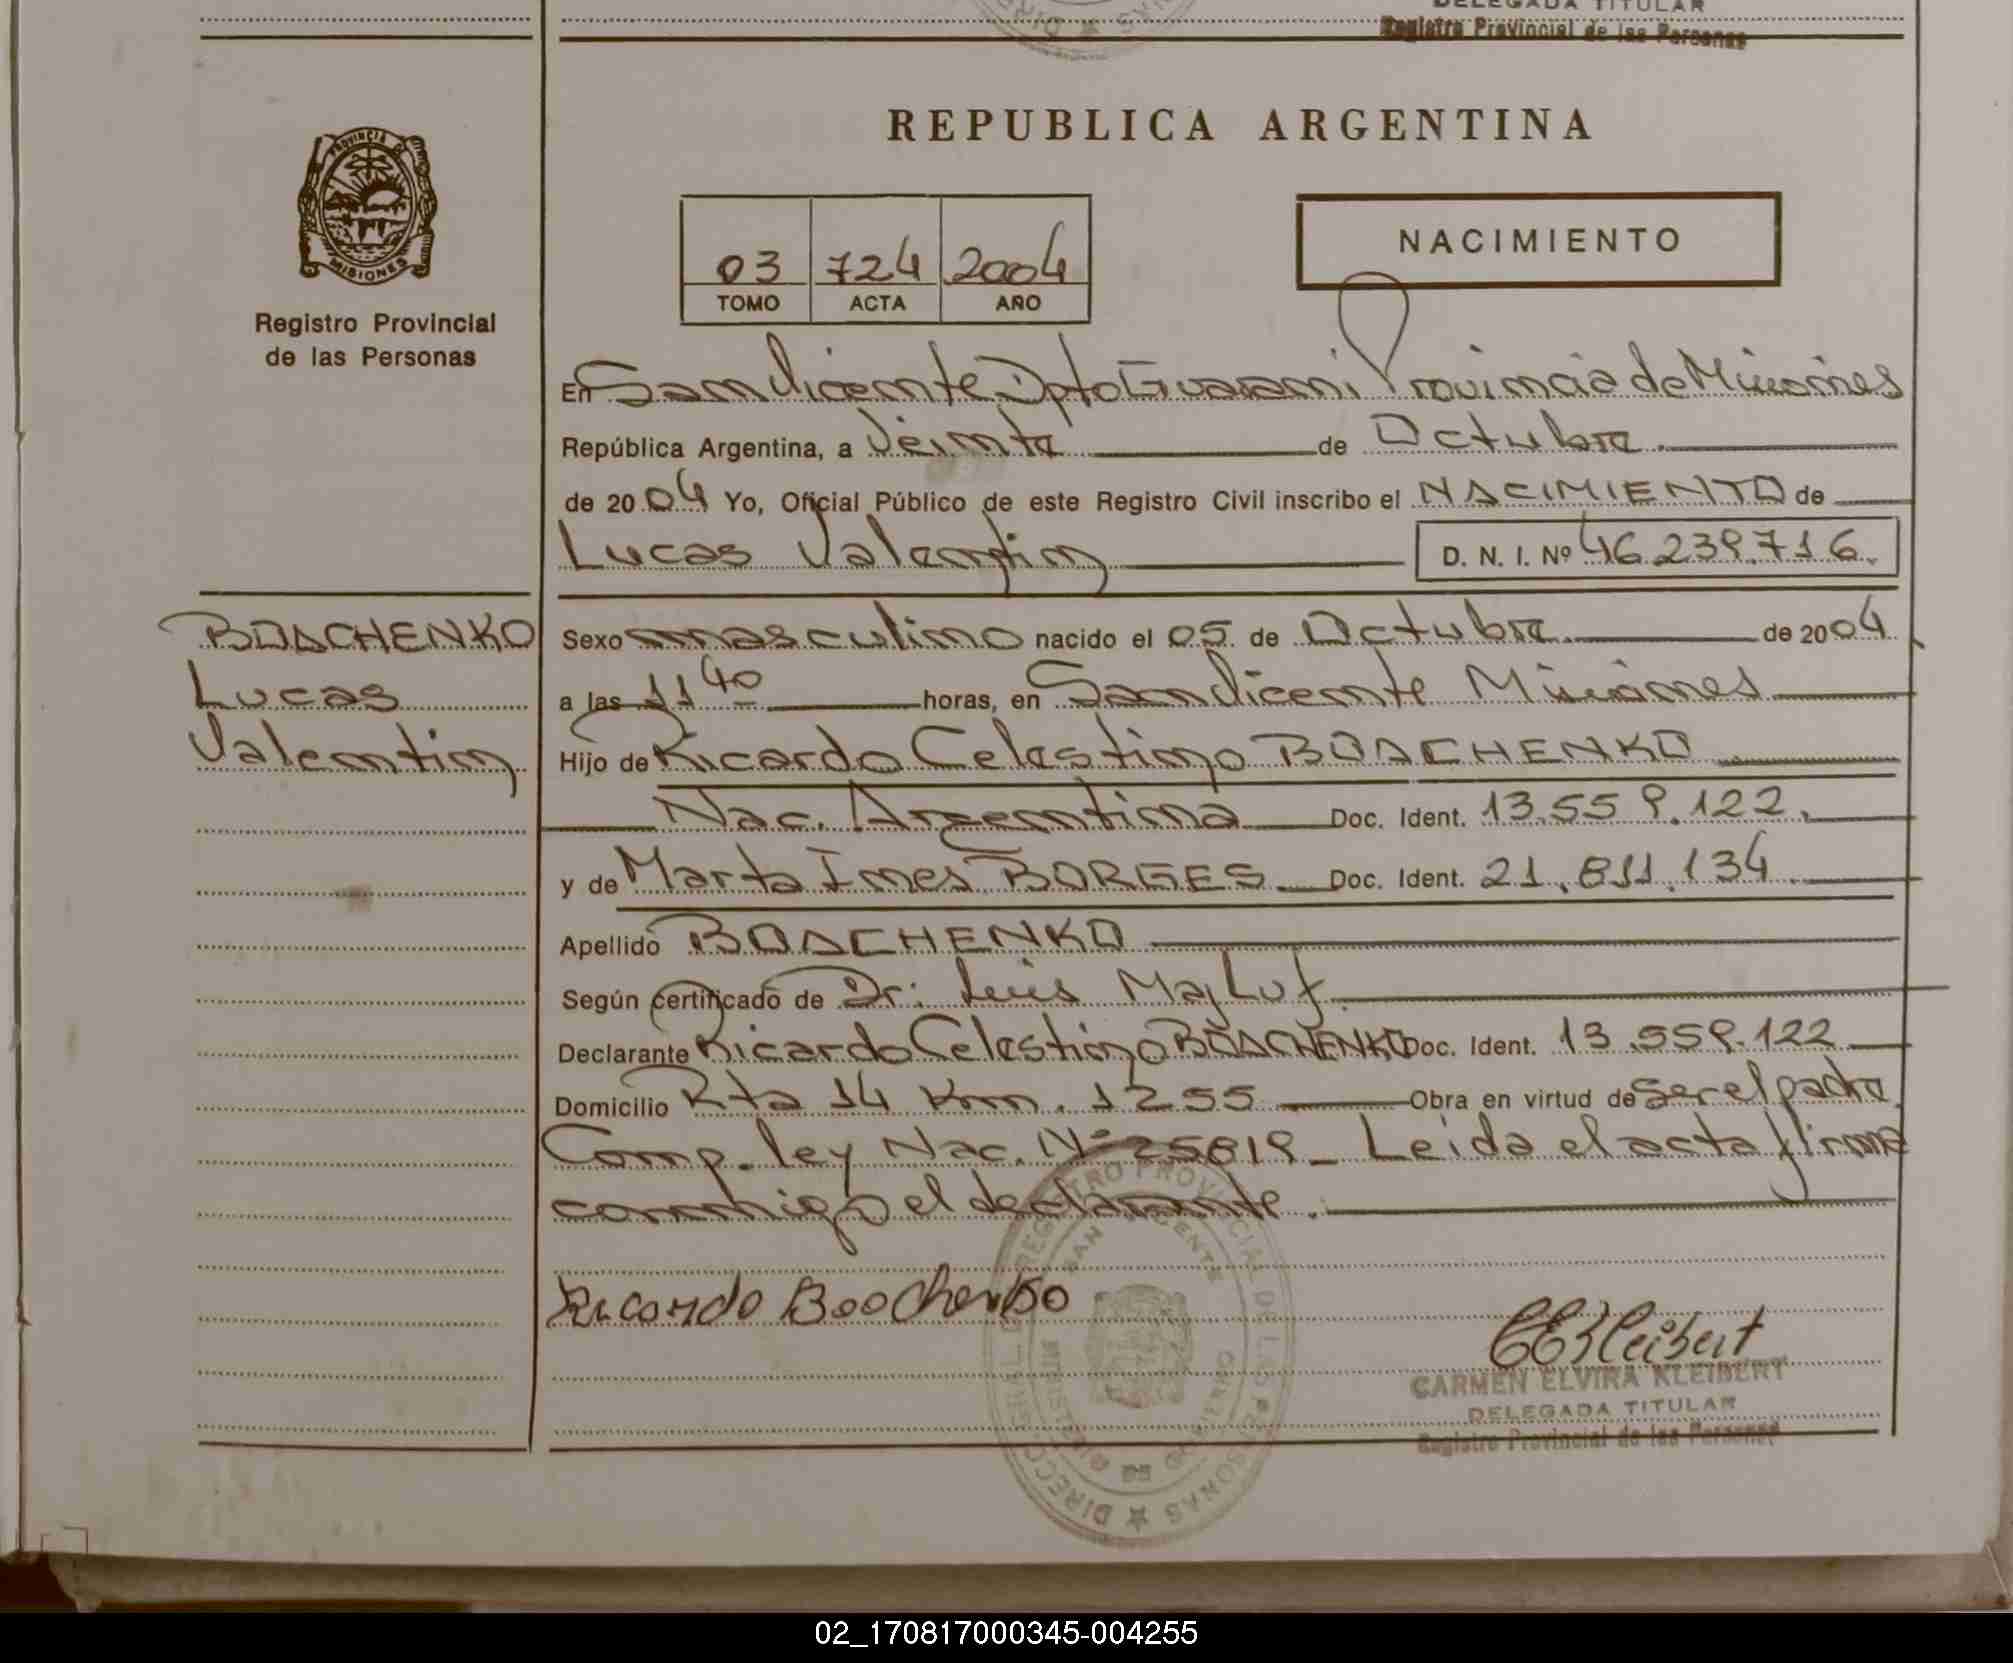 DELEGADA TITULAR
Registro Provincial de las Personas
PROVINCIA DE
MISIONES
Registro Provincial
de las Personas
REPUBLICA ARGENTINA
NACIMIENTO
03 724 2004
TOMO ACTA AÑO
En San Vicente Dpto Guarani Provincia de Misiones
República Argentina, a Veinte de Octubre.
de 2004 Yo, Oficial Público de este Registro Civil inscribo el NACIMIENTO de
Lucas Valentin D. N. I. Nº 46.239.716.
BOACHENKO
Lucas
Valentin
Sexo masculino nacido el 05 de Octubre de 2004
a las 11 40 horas, en San Vicente Misiones
Hijo de Ricardo Celestino BOACHENKO
Nac. Argentina Doc. Ident. 13.559.122.
y de Marta Ines BORGES Doc. Ident. 21.811.134
Apellido BOACHENKO
Según certificado de Dr. Luis Majluf
Declarante Ricardo Celestino BOACHENKO Doc. Ident. 13.559.122
Domicilio Rta 14 Km. 1255 Obra en virtud de ser el padre
Comp. ley Nac. Nº 25819 _ Leida el acta firma
conmigo el declarante.
Ricardo Boochenko
CEKleibert
CARMEN ELVIRA KLEIBERT
DELEGADA TITULAR
Registro Provincial de las Personas
DIRECC. GRAL. DEL REGISTRO PROVINCIAL DE LAS PERSONAS
SAN VICENTE
MINISTERIO DE GOBIERNO
02_170817000345-004255